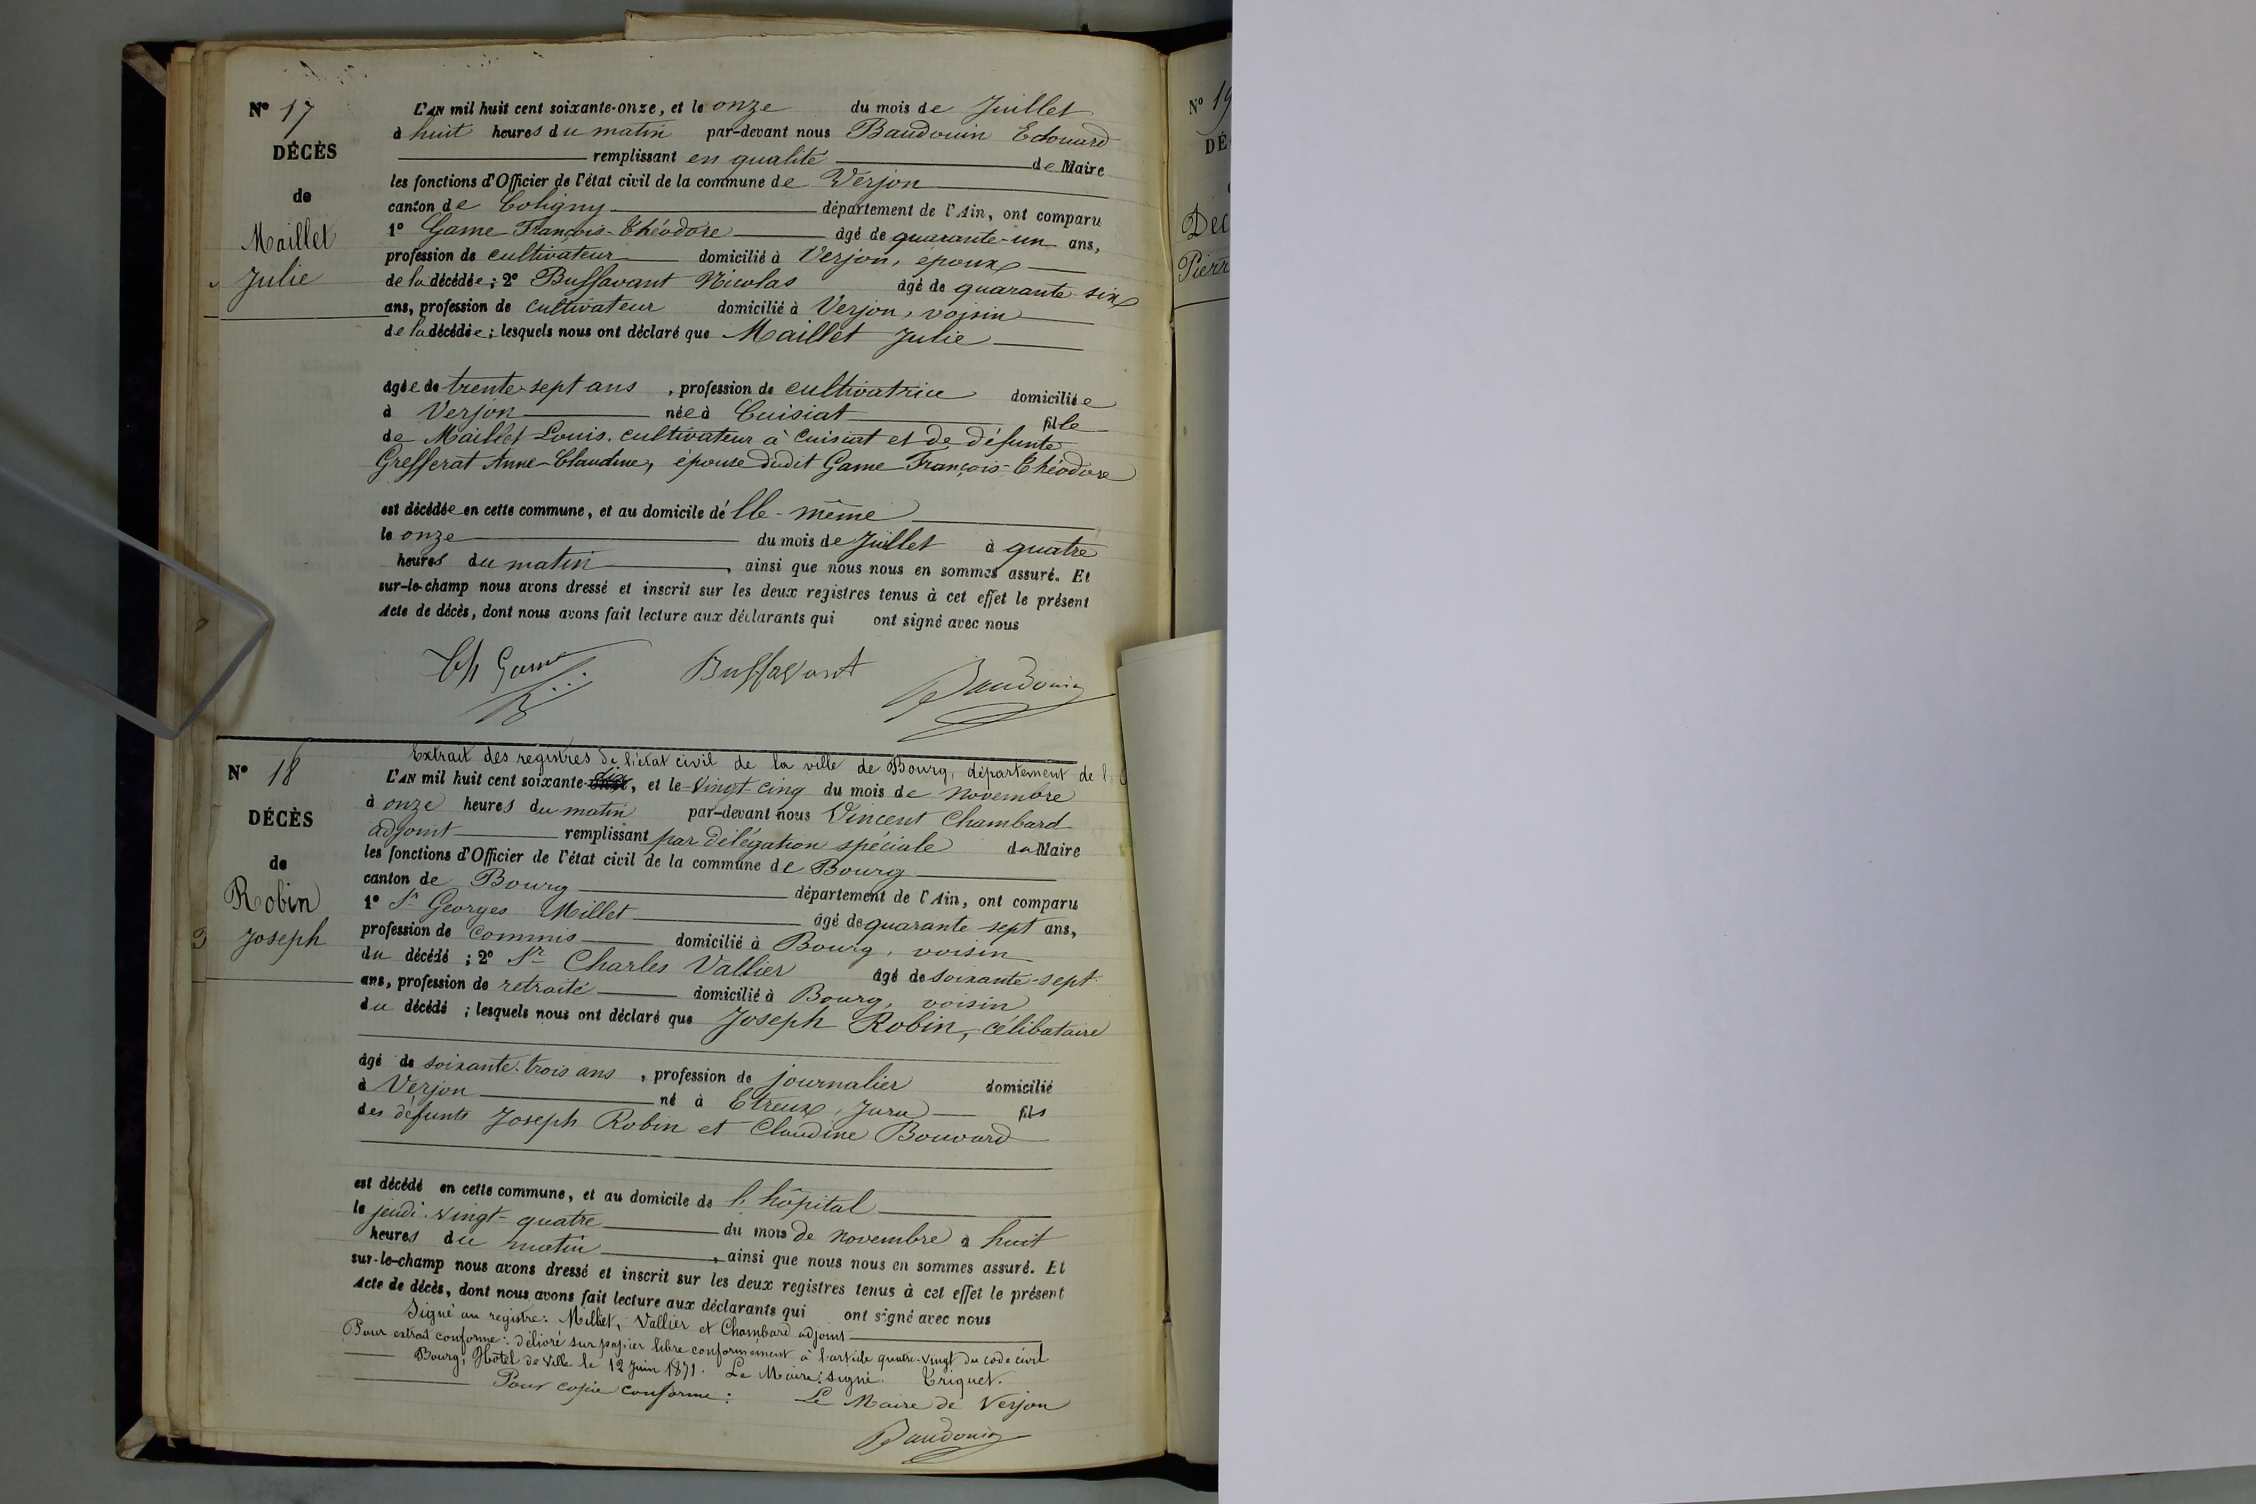 N° 17
DÉCÈS
de
Maillet
Julie
L'AN mil huit cent soixante-onze, et le onze du mois de Juillet
à huit heures du matin par-devant nous Baudouin Edouard
remplissant en qualité de Maire
les fonctions d'Officier de l'état civil de la commune de Verjon
canton de Coligny département de l'Ain, ont comparu
1° Game François-Théodore âgé de quarante-un ans,
profession de cultivateur domicilié à Verjon, époux
de la décédée ; 2° Buffavant Nicolas âgé de quarante-six
ans, profession de cultivateur domicilié à Verjon, voisin
de la décédée ; lesquels nous ont déclaré que Maillet Julie
âgée de trente-sept ans, profession de cultivatrice domiciliée
à Verjon née à Cuisiat fille
de Maillet Louis, cultivateur à Cuisiat et de défunte
Grefferat Anne-Claudine, épouse dudit Game François-Théodore
est décédée en cette commune, et au domicile d'elle-même
le onze du mois de Juillet à quatre
heures du matin, ainsi que nous nous en sommes assuré. Et
sur-le-champ nous avons dressé et inscrit sur les deux registres tenus à cet effet le présent
Acte de décès, dont nous avons fait lecture aux déclarants qui ont signé avec nous
Th Game Buffavant Baudouin
N° 18
DÉCÈS
de
Robin
Joseph
Extrait des registres de l'état civil de la ville de Bourg, département de l'
L'AN mil huit cent soixante-dix, et le vingt-cinq du mois de novembre
à onze heures du matin par-devant nous Vincent Chambard
adjoint remplissant par délégation spéciale du Maire
les fonctions d'Officier de l'état civil de la commune de Bourg
canton de Bourg département de l'Ain, ont comparu
1° Sr Georges Millet âgé de quarante sept ans,
profession de commis domicilié à Bourg, voisin
du décédé ; 2° Sr Charles Vallier âgé de soixante-sept
ans, profession de retraité domicilié à Bourg, voisin
du décédé ; lesquels nous ont déclaré que Joseph Robin, célibataire
âgé de soixante-trois ans, profession de journalier domicilié
à Verjon né à Etreux, Jura fils
des défunts Joseph Robin et Claudine Bouvard
est décédé en cette commune, et au domicile de l'hôpital
le jeudi vingt-quatre du mois de novembre à huit
heures du matin, ainsi que nous nous en sommes assuré. Et
sur-le-champ nous avons dressé et inscrit sur les deux registres tenus à cet effet le présent
Acte de décès, dont nous avons fait lecture aux déclarants qui ont signé avec nous
Signé au registre : Milliet, Vallier et Chambard adjoint
Pour extrait conforme : délivré sur papier libre conformément à l'article quatre-vingt du code civil
Bourg, Hôtel de Ville le 12 juin 1871. Le Maire : signé. Triquet.
Pour copie conforme : Le Maire de Verjon
Baudouin
N° 19
DÉ
Dec
Pierr